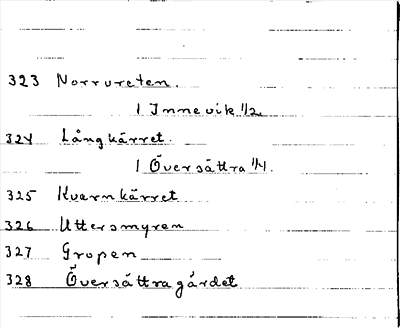 323 Norrvreten.
1 Innevik 1/2
324 Långkärret.
1 Översättra 1/1.
325 Kvarnkärret
326 Uttersmyren
327 Gropen
328 Översättragärdet